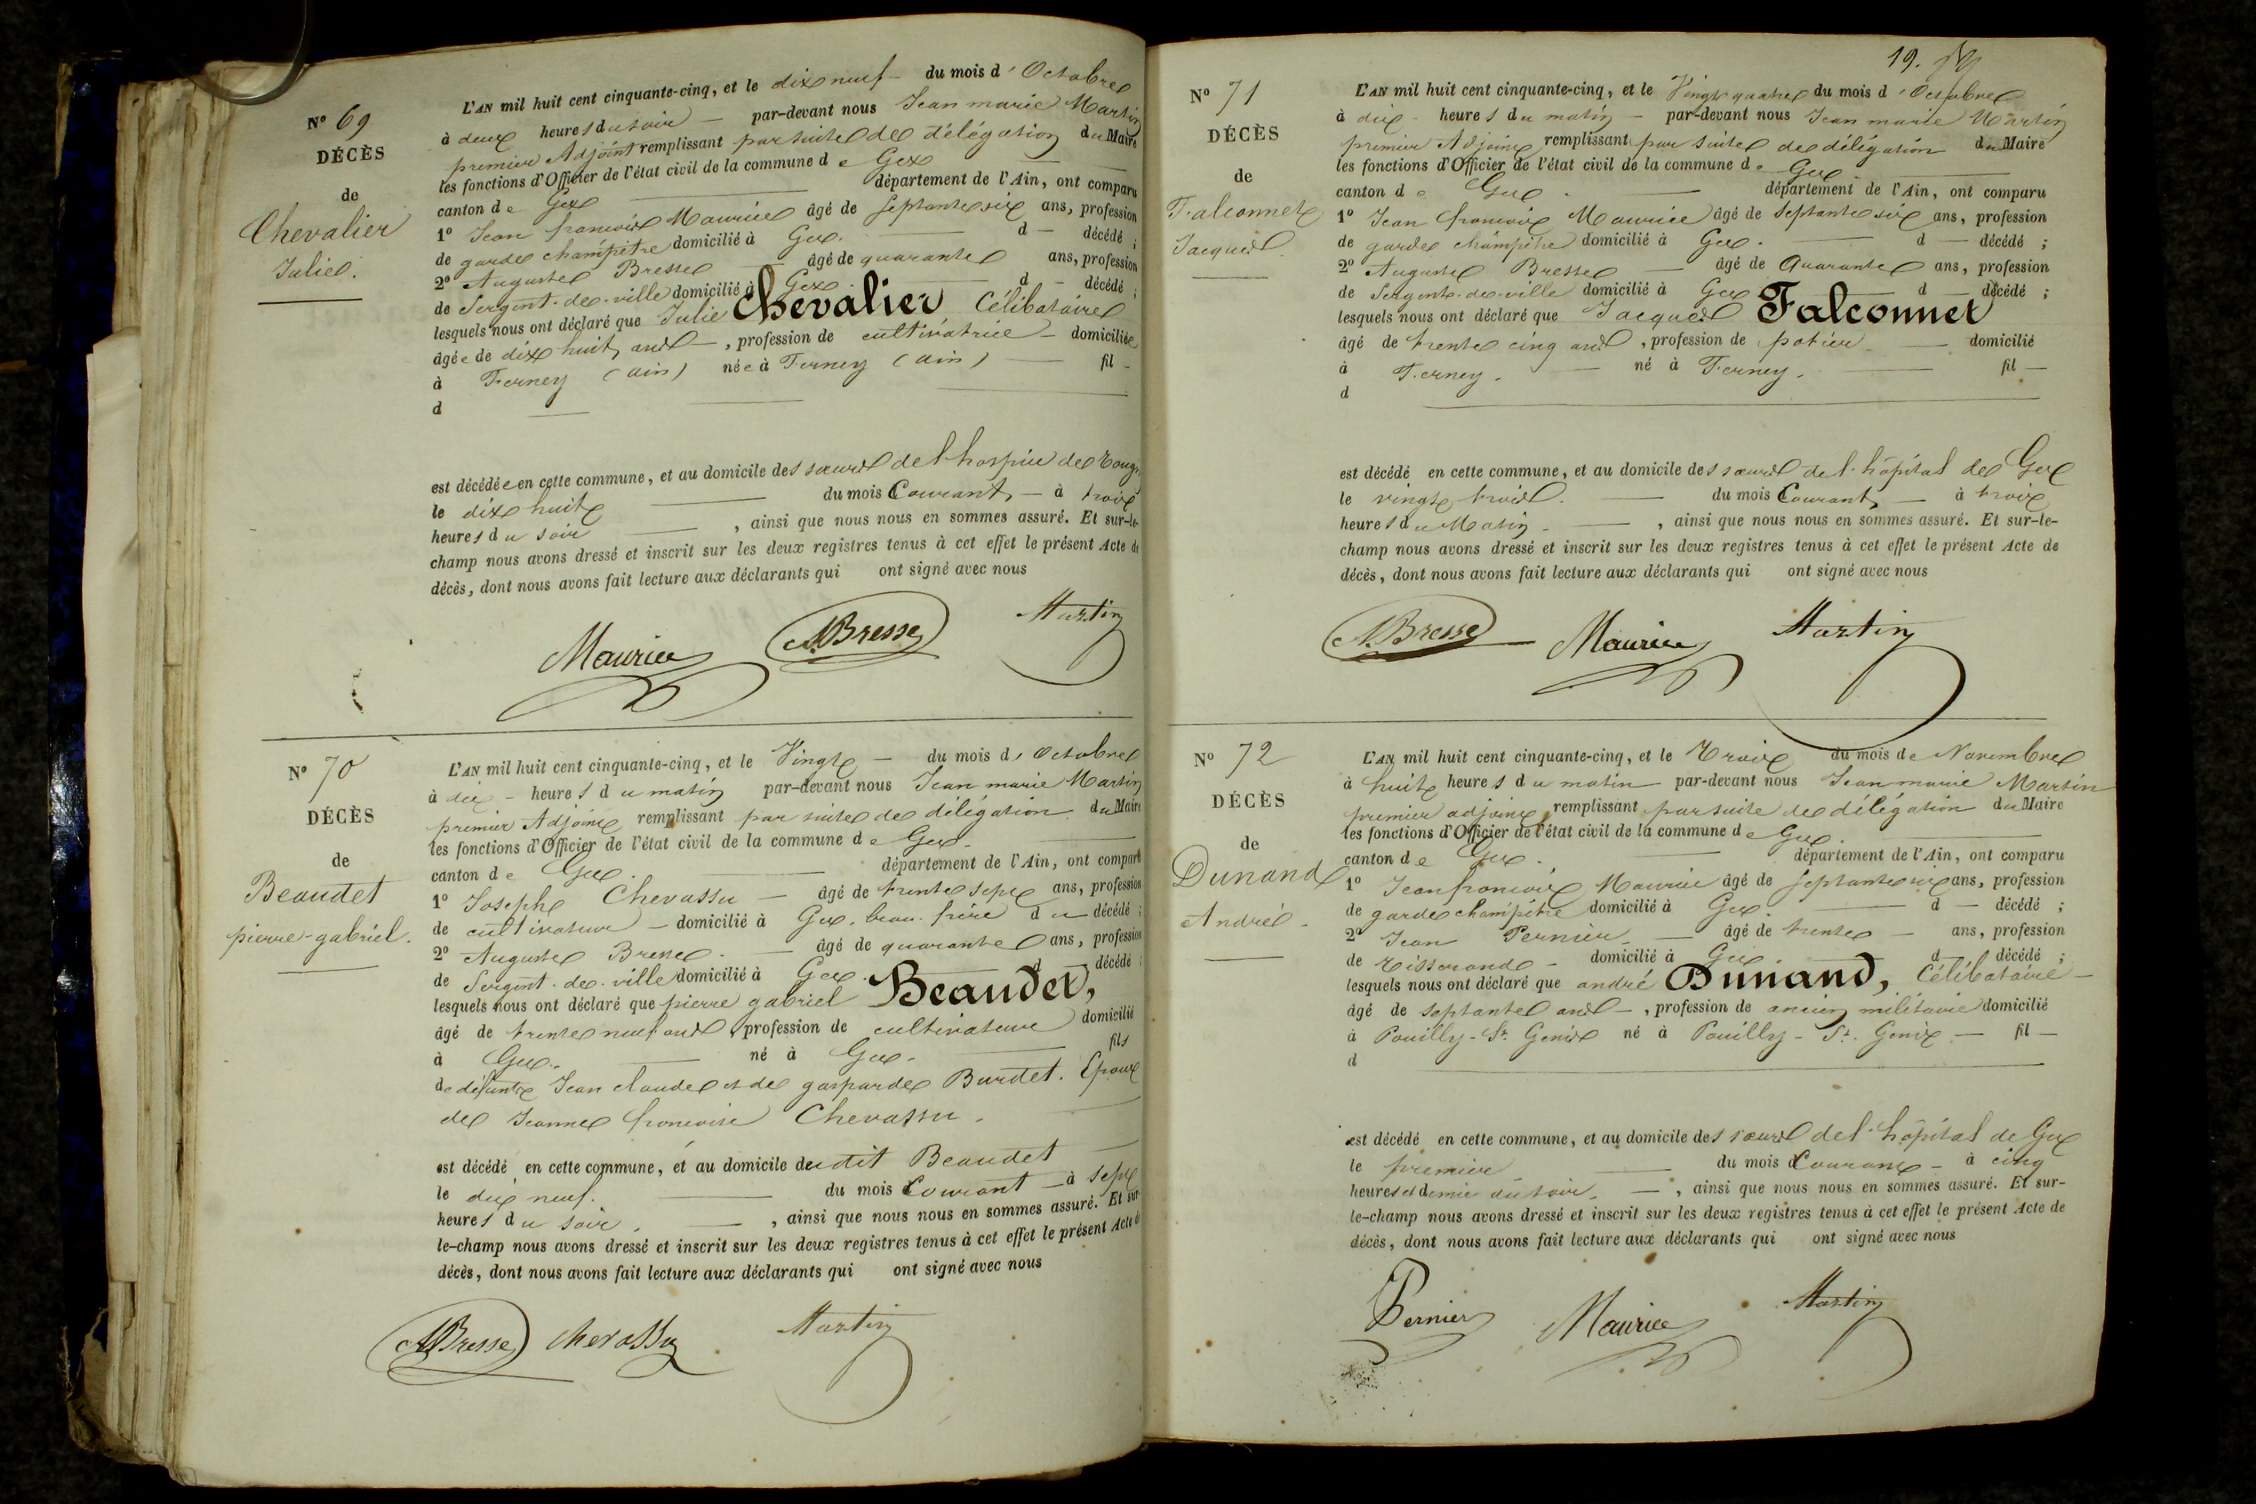 N° 69
DÉCÈS
de
Chevalier
Julie.
L'AN mil huit cent cinquante-cinq, et le dix neuf du mois d'Octobre
à deux heures du soir par-devant nous Jean marie Martin
premier Adjoint remplissant par suite de délégation du Maire
les fonctions d'Officier de l'état civil de la commune de Gex
canton de Gex département de l'Ain, ont comparu
1° Jean françois Maurice âgé de septante six ans, profession
de garde champêtre domicilié à Gex. d décédé ;
2° Auguste Bresse âgé de quarante ans, profession
de Sergent-de-ville domicilié à Gex. d décédé ;
lesquels nous ont déclaré que Julie Chevalier Célibataire
âgée de dix huit ans, profession de cultivatrice domiciliée
à Ferney (Ain) née à Ferney (Ain) fil
d
est décédée en cette commune, et au domicile des sœurs de l'hospice de
le dix huit du mois Courant à trois
heures du soir, ainsi que nous nous en sommes assuré. Et sur-le-
champ nous avons dressé et inscrit sur les deux registres tenus à cet effet le présent Acte de
décès, dont nous avons fait lecture aux déclarants qui ont signé avec nous
Maurice ABresse Martin
N° 70
DÉCÈS
de
Beaudet
pierre-gabriel.
L'AN mil huit cent cinquante-cinq, et le Vingt du mois d'Octobre
à dix heures du matin par-devant nous Jean marie Martin
premier Adjoint remplissant par suite de délégation du Maire
les fonctions d'Officier de l'état civil de la commune de Gex.
canton de Gex. département de l'Ain, ont comparu
1° Joseph Chevassu âgé de trente sept ans, profession
de cultivateur domicilié à Gex. beau-frère du décédé ;
2° Auguste Bresse. âgé de quarante ans, profession
de Sergent-de-ville domicilié à Gex. d décédé ;
lesquels nous ont déclaré que pierre gabriel Beaudet,
âgé de trente neuf ans, profession de cultivateur domicilié
à Gex. né à Gex. fils
de défunts Jean claude et de gasparde Burdet. Epoux
de Jeanne françoise Chevassu.
est décédé en cette commune, et au domicile dudit Beaudet
le dix neuf. du mois Courant à sept
heures du soir, ainsi que nous nous en sommes assuré. Et sur-
le-champ nous avons dressé et inscrit sur les deux registres tenus à cet effet le présent Acte de
décès, dont nous avons fait lecture aux déclarants qui ont signé avec nous
ABresse chevassu Martin
19.
N° 71
DÉCÈS
de
Falconnet
Jacques.
L'AN mil huit cent cinquante-cinq, et le Vingt quatre du mois d'Octobre
à dix heures du matin par-devant nous Jean marie Martin
premier Adjoint remplissant par suite de délégation du Maire
les fonctions d'Officier de l'état civil de la commune de Gex.
canton de Gex. département de l'Ain, ont comparu
1° Jean françois Maurice âgé de septante six ans, profession
de garde champêtre domicilié à Gex. d décédé ;
2° Auguste Bresse âgé de Quarante ans, profession
de Sergent-de-ville domicilié à Gex d décédé ;
lesquels nous ont déclaré que Jacques Falconnet
âgé de trente cinq ans, profession de potier domicilié
à Ferney. né à Ferney. fil
d
est décédé en cette commune, et au domicile des sœurs de l'hôpital de Gex
le vingt trois. du mois Courant, à trois
heures du Matin, ainsi que nous nous en sommes assuré. Et sur-le-
champ nous avons dressé et inscrit sur les deux registres tenus à cet effet le présent Acte de
décès, dont nous avons fait lecture aux déclarants qui ont signé avec nous
ABresse Maurice Martin
N° 72
DÉCÈS
de
Dunand
André.
L'AN mil huit cent cinquante-cinq, et le Trois du mois de Novembre
à huit heures du matin par-devant nous Jean marie Martin
premier adjoint remplissant par suite de délégation du Maire
les fonctions d'Officier de l'état civil de la commune de Gex.
canton de Gex. département de l'Ain, ont comparu
1° Jean françois Maurice âgé de septante six ans, profession
de garde champêtre domicilié à Gex. d décédé ;
2° Jean Pernier âgé de trente ans, profession
de Tisserand domicilié à Gex. d décédé ;
lesquels nous ont déclaré que andré Dunand, Célibataire
âgé de septante ans, profession de ancien militaire domicilié
à Pouilly-St. Genix né à Pouilly-St. Genix fil
d
est décédé en cette commune, et au domicile des sœurs de l'hôpital de Gex
le premier du mois Courant à cinq
heures et demie du soir, ainsi que nous nous en sommes assuré. Et sur-
le-champ nous avons dressé et inscrit sur les deux registres tenus à cet effet le présent Acte de
décès, dont nous avons fait lecture aux déclarants qui ont signé avec nous
Pernier Maurice Martin